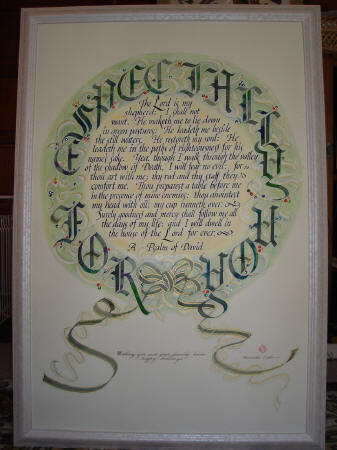 ESPECIALLY
FOR YOU
The Lord is my
shepherd; I shall not
want. He maketh me to lie down
in green pastures: He leadeth me beside
the still waters. He restoreth my soul: He
leadeth me in the paths of righteousness for his
name's sake. Yea, though I walk through the valley
of the shadow of Death, I will fear no evil: for
thou art with me; thy rod and thy staff they
comfort me. Thou preparest a table before me
in the presence of mine enemies: thou anointest
my head with oil; my cup runneth over.
Surely goodness and mercy shall follow me all
the days of my life: and I will dwell in
the house of the Lord for ever.
A Psalm of David
Wishing you and your family